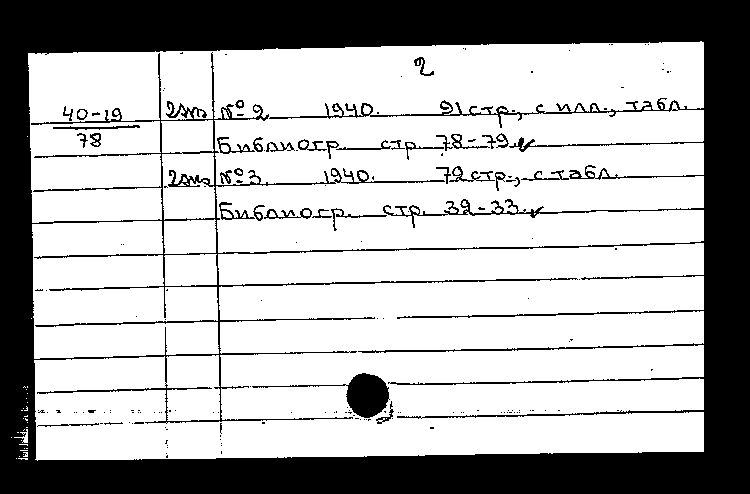 2
40-19 2эт № 2 1940. 91 стр., с илл., табл.
78 Библиогр. стр. 78-79.
2эт № 3 1940. 72 стр., с табл.
Библиогр. стр. 32-33.